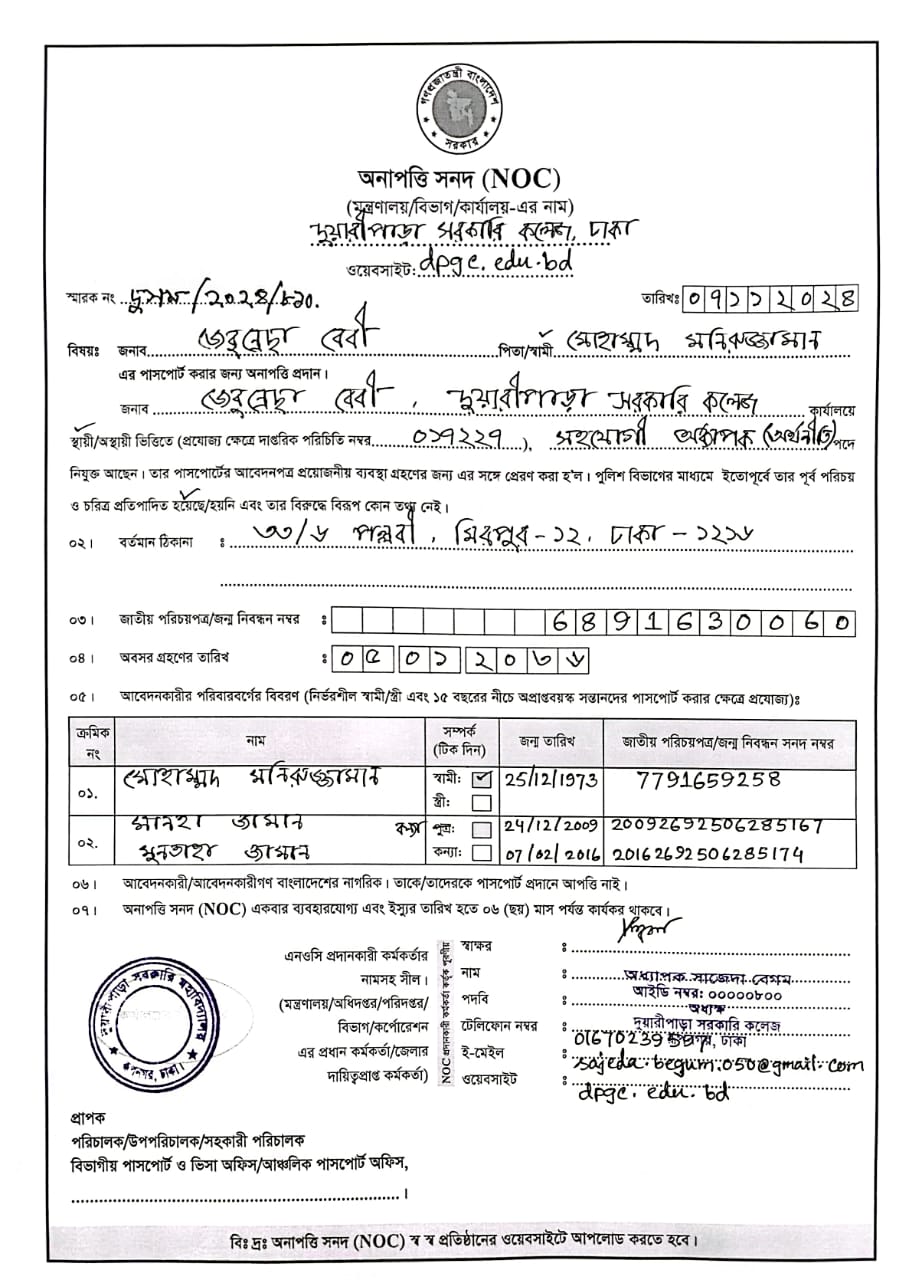 গণপ্রজাতন্ত্রী বাংলাদেশ
সরকার
অনাপত্তি সনদ (NOC)
(মন্ত্রণালয়/বিভাগ/কার্যালয়-এর নাম)
দুয়ারীপাড়া সরকারি কলেজ, ঢাকা
ওয়েবসাইট: dpgc.edu.bd
স্মারক নং দুসক/২০২৪/৮১০. তারিখঃ ০৭১১২০২৪
বিষয়ঃ জনাব জেবুন্নেছা বেবী পিতা/স্বামী মোহাম্মদ মনিরুজ্জামান
এর পাসপোর্ট করার জন্য অনাপত্তি প্রদান।
জনাব জেবুন্নেছা বেবী, দুয়ারীপাড়া সরকারি কলেজ কার্যালয়ে
স্থায়ী/অস্থায়ী ভিত্তিতে (প্রযোজ্য ক্ষেত্রে দাপ্তরিক পরিচিতি নম্বর ০১৭২২৭), সহযোগী অধ্যাপক (অর্থনীতি) পদে
নিযুক্ত আছেন। তার পাসপোর্টের আবেদনপত্র প্রয়োজনীয় ব্যবস্থা গ্রহণের জন্য এর সঙ্গে প্রেরণ করা হ'ল। পুলিশ বিভাগের মাধ্যমে ইতোপূর্বে তার পূর্ব পরিচয়
ও চরিত্র প্রতিপাদিত হয়েছে/হয়নি এবং তার বিরুদ্ধে বিরূপ কোন তথ্য নেই।
০২। বর্তমান ঠিকানা ঃ ৩০/৬ পল্লবী, মিরপুর-১২, ঢাকা-১২১৬
০৩। জাতীয় পরিচয়পত্র/জন্ম নিবন্ধন নম্বর ঃ 6891630060
০৪। অবসর গ্রহণের তারিখ ঃ ০৫ ০১ ২০৩৬
০৫। আবেদনকারীর পরিবারবর্গের বিবরণ (নির্ভরশীল স্বামী/স্ত্রী এবং ১৫ বছরের নীচে অপ্রাপ্তবয়স্ক সন্তানদের পাসপোর্ট করার ক্ষেত্রে প্রযোজ্য)ঃ
ক্রমিক নং নাম সম্পর্ক (টিক দিন) জন্ম তারিখ জাতীয় পরিচয়পত্র/জন্ম নিবন্ধন সনদ নম্বর
০১. মোহাম্মদ মনিরুজ্জামান স্বামী: ✓ 25/12/1973 7791659258
স্ত্রী:
০২. মানহা জামান কন্যা পুত্র: 24/12/2009 20092692506285167
মুনতাহা জামান কন্যা: 07/02/2016 20162692506285174
০৬। আবেদনকারী/আবেদনকারীগণ বাংলাদেশের নাগরিক। তাকে/তাদেরকে পাসপোর্ট প্রদানে আপত্তি নাই।
০৭। অনাপত্তি সনদ (NOC) একবার ব্যবহারযোগ্য এবং ইস্যুর তারিখ হতে ০৬ (ছয়) মাস পর্যন্ত কার্যকর থাকবে।
দুয়ারীপাড়া সরকারি মহাবিদ্যালয়
ঢাকা।
এনওসি প্রদানকারী কর্মকর্তার
নামসহ সীল।
(মন্ত্রণালয়/অধিদপ্তর/পরিদপ্তর/
বিভাগ/কর্পোরেশন
এর প্রধান কর্মকর্তা/জেলার
দায়িত্বপ্রাপ্ত কর্মকর্তা)
NOC প্রদানকারী কর্মকর্তা কর্তৃক পূরণীয়
স্বাক্ষর ঃ
নাম ঃ অধ্যাপক সাজেদা বেগম
আইডি নম্বর: ০০০০০৮০০
পদবি ঃ অধ্যক্ষ
দুয়ারীপাড়া সরকারি কলেজ
টেলিফোন নম্বর ঃ ঢাকা
ই-মেইল ঃ sajeda.begum.050@gmail.com
ওয়েবসাইট ঃ dpgc.edu.bd
প্রাপক
পরিচালক/উপপরিচালক/সহকারী পরিচালক
বিভাগীয় পাসপোর্ট ও ভিসা অফিস/আঞ্চলিক পাসপোর্ট অফিস,
।
বিঃ দ্রঃ অনাপত্তি সনদ (NOC) স্ব স্ব প্রতিষ্ঠানের ওয়েবসাইটে আপলোড করতে হবে।